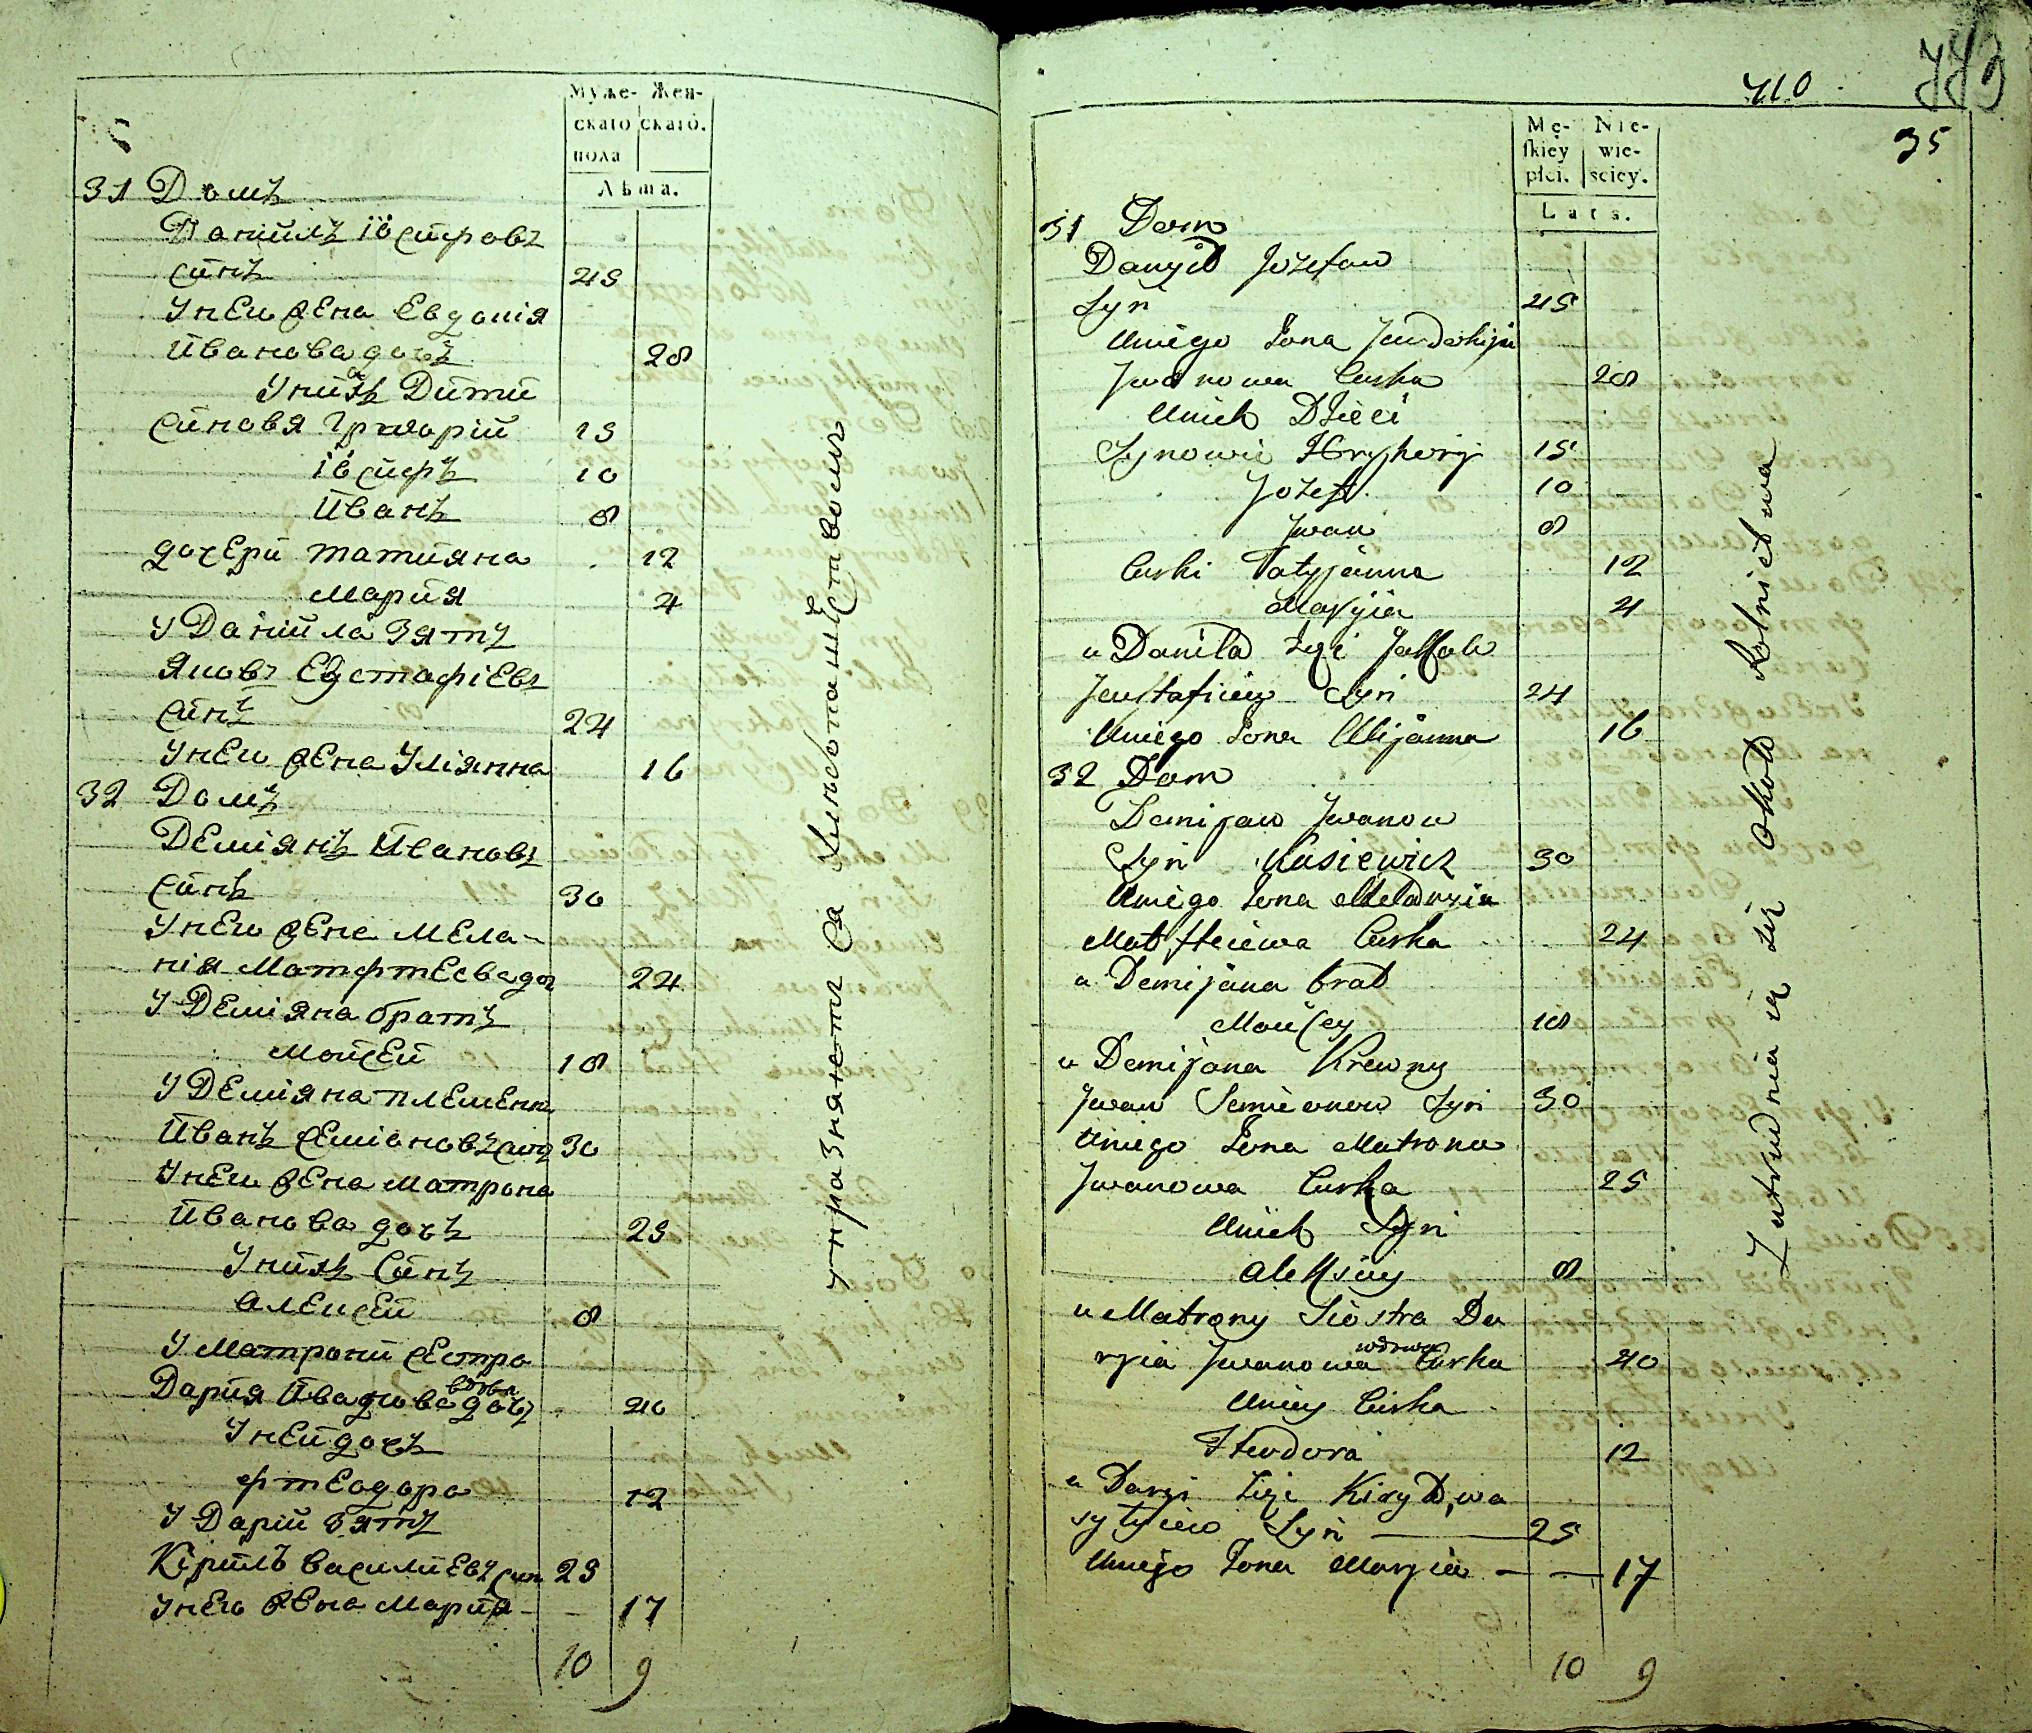 Муже- Жен-
скаго скаго.
пола
Лѣта.
31 Домъ
Даниилъ Іѡсифовъ
синъ 45
Унего жена Евдокія
Ивановa дочь 28
Унихъ Дити
Синовя Григорій 15
Іѡсифъ 10
Иванъ 8
дочери татияна 12
Мария 4
У Даниила Зять
Яковъ Евстафіевъ
синъ 24
Унего жена Улиянна 16
32 Домъ
Деміянъ Ивановъ
синъ 30
Унего жена Мела-
нія Матфтеева доч 24
У Деміяна братъ
Мойсей 18
У Деміяна племенн
Иванъ Семіоновъ синъ 30
Унего жена Матрона
Иванова дочь 25
Унихъ Синъ
Алексей 8
У Матрони сестра
вдова
Дария Иванова дочь 40
Уней дочь
Фтеодора 12
У Дарии зять
Кирилъ Василиевъ син 25
Унего жена Мария 17
10 9
упразняется хлебопашеством
773
710
35
Mę- Nie-
skiey wie-
płci. sciey.
Lata.
31 Dom
Danyił Jozefow
Syn 45
Uniego Żona Jewdokija
Jwanowa Curka 28
Unich Dzieci
Synowie Hryhory 15
Jozef 10
Jwan 8
Curki Tatyjanna 12
Maryja 4
u Daniła Zięć Jakow
Jewstafiew Syn 24
Uniego Żona Ulijanna 16
32 Dom
Demijan Jwanow
Syn Kasiewicz 30
Uniego Żona Meładnia
Matfteiewa Curka 24
u Demijana brat
Moisey 18
u Demijana Krewny
Jwan Semionow Syn 30
Uniego Żona Matrona
Jwanowa Curka 25
Unich Syn
Aleksiey 8
u Matrony Siostra Da
wdowa
ryia Jwanowa Curka 40
Uniey Curka
Fteodora 12
u Daryi Zięć Kirył Wa
syłyiew Syn 25
Uniego Żona Maryia 17
10 9
Zatrudniaią się około Rolnictwa